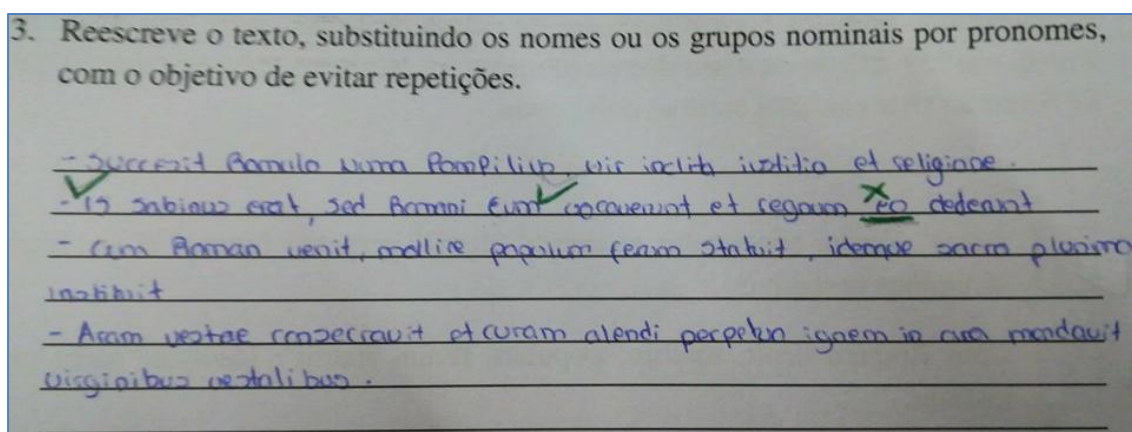 3. Reescreve o texto, substituindo os nomes ou os grupos nominais por pronomes,
com o objetivo de evitar repetições.
- Successit Romulo Numa Pompilius, vir inclito iustitia et religione.
- Is Sabinus erat, sed Romani eum vocaverunt et regnum eo dederunt
- Cum Roman venit, mollire populum feram statuit, idemque sacra plurima
instituit
- Aram vestae consecravit et curam alendi perpetuo ignem in ara mandavit
virginibus vestalibus.